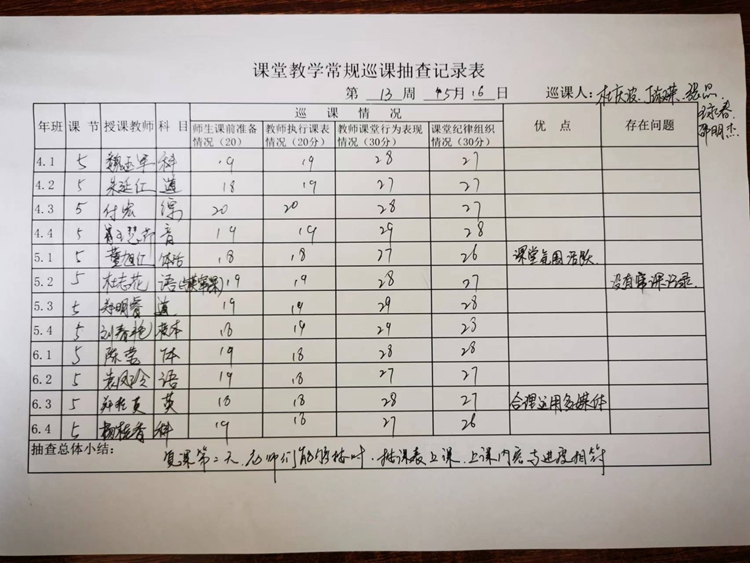 课堂教学常规巡课抽查记录表
第 13 周 5月 16 日 巡课人：
年班 课 节 授课教师 科 目 巡 课 情 况 优 点 存在问题
师生课前准备情况（20） 教师执行课表情况（20分） 教师课堂行为表现（30分） 课堂纪律组织情况（30分）
4.1 5 科 19 19 28 27
4.2 5 道 18 19 27 27
4.3 5 付宏 综 20 20 28 27
4.4 5 音 19 19 29 28
5.1 5 18 18 27 26 课堂氛围活跃
5.2 5 杜志花 语 19 19 28 27 没有
5.3 5 郑明睿 道 19 19 29 28
5.4 5 刘春艳 校本 18 19 29 28
6.1 5 陈莹 体 19 18 28 28
6.2 5 语 19 18 27 27
6.3 5 英 18 18 28 27 合理运用多媒体
6.4 5 杨桂香 科 19 18 27 26
抽查总体小结： 复课第二天，老师们能够按时、按课表上课，上课内容与进度相符